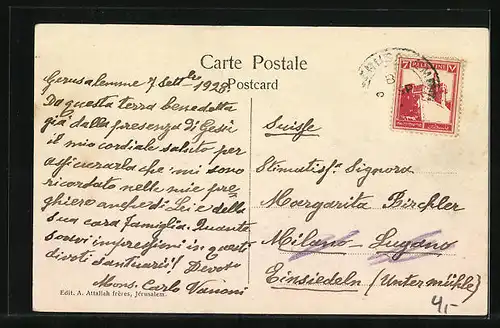 Carte Postale
Postcard
Gerusalemme 7 Sett.bre 1928.
Da questa terra benedetta
già dalla presenza di Gesù
il mio cordiale saluto per
assicurarla che mi sono
ricordato nelle mie pre-
ghiere anche di Lei e della
sua cara famiglia. Quante
soavi impressioni in questi
divoti santuarii! Devoto
Mons. Carlo
Edit. A. Attallah frères, Jérusalem.
7 PALESTINE 7
Suisse
Stimatis.a Signora
Margarita Birchler
Milano - Lugano
Einsiedeln (Untermühle)
4,-